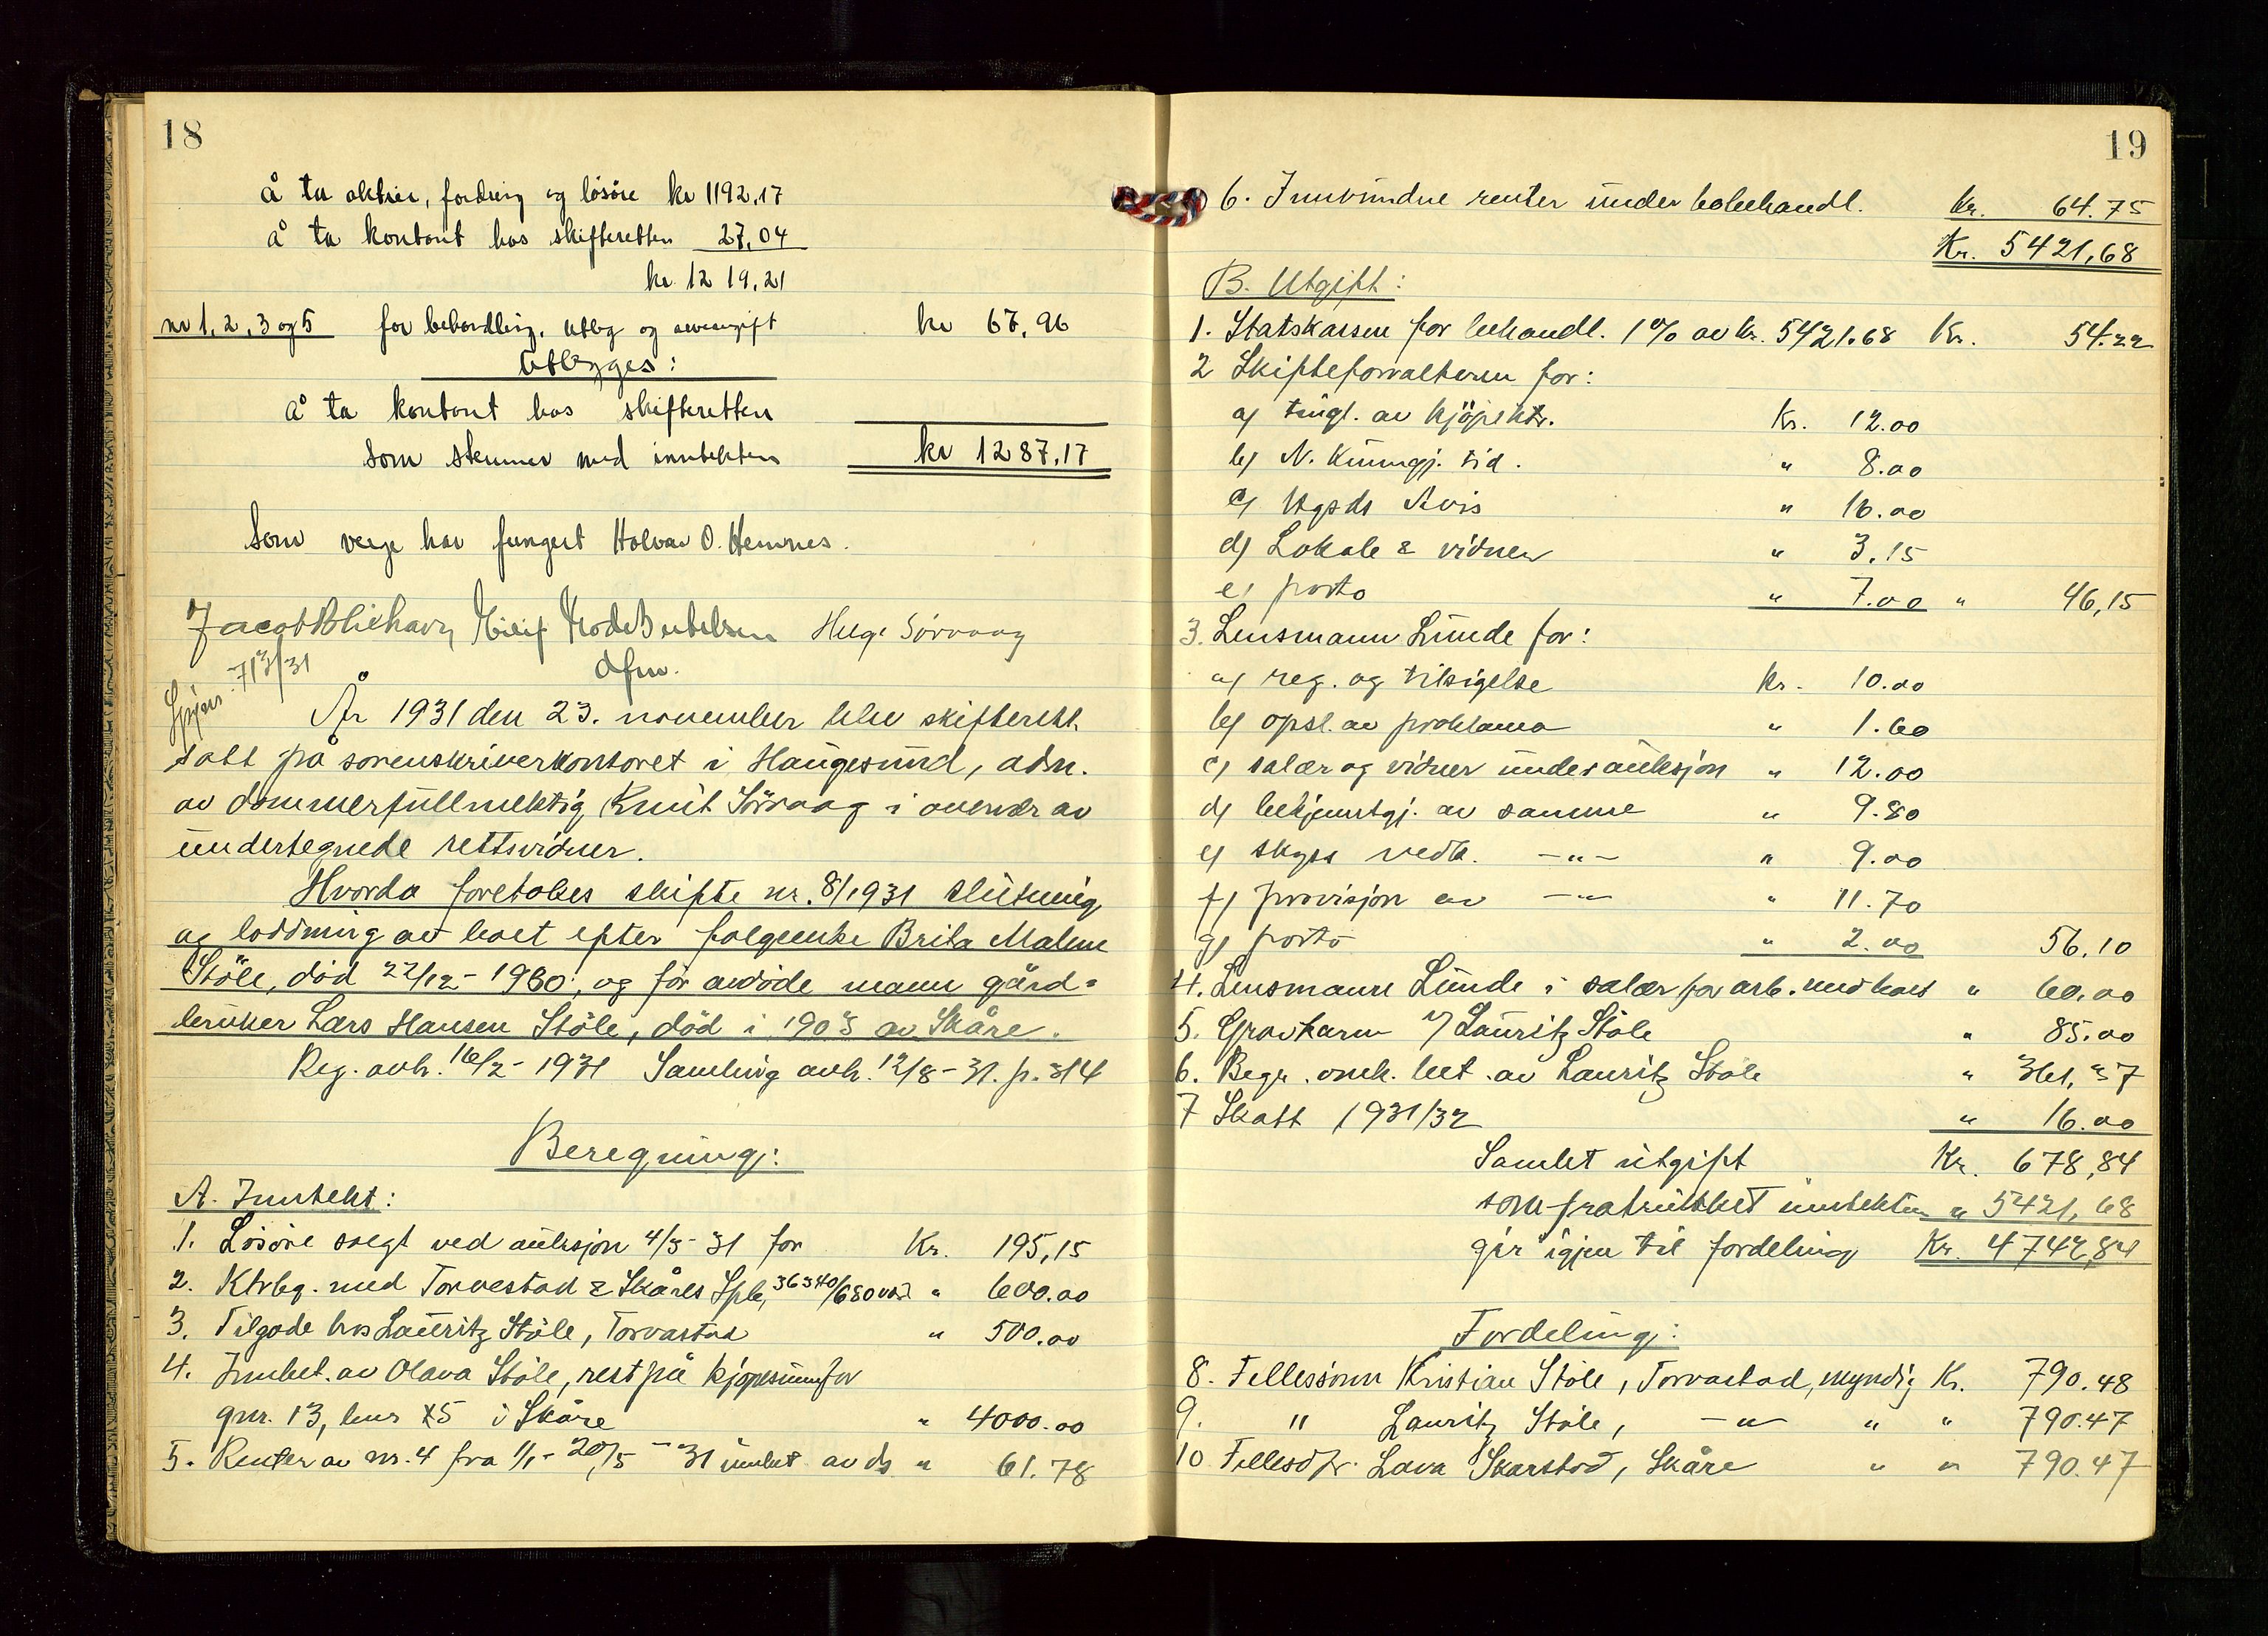 18
å ta aktier, fordring og lösöre kr 1192,17
å ta kontant hos skifteretten 27,04
kr 1219,21
nr 1, 2, 3 og 5 for behandling, utleg og arveavgift kr 67,96
Utlegges:
å ta kontant hos skifteretten
som stemmer med inntekten kr 1287,17
Som verge har fungert Halvar O. Hemnes.
Hege Sörvaag
7/3/31
dfm.
År 1931 den 23. november blev skifterett
satt på sorenskriverkontoret i Haugesund, adm.
av dommerfullmektig Knut Sörvaag i overvær av
undertegnede rettsvidner.
Hvorda foretokes skifte nr. 8/1931 slutning
og loddning av boet efter folgeenke Brita Malene
Stöle, död 22/12-1930, og för avdöde mann gård-
bruker Lars Hansen Stöle, död i 1905 av Skåre.
Reg. avh. 16/2-1931 Samling avh. 12/8-31. p. 314
Beregning:
A. Inntekt:
1. Lösöre solgt ved auksjon 4/3-31 for Kr. 195,15
2. Ktrbg. med Torvestad & Skåres Spb., 36340/680 " 600.00
3. Tilgode hos Lauritz Stöle, Torvastad " 500.00
4. Innbet. av Olava Stöle, rest på kjöpesum for
gnr. 13, bnr 75 i Skåre " 4000.00
5. Renter av nr. 4 fra 1/1-20/5-31 innbet av ds " 61.78
19
6. Innvundne renter under bobehandl. Kr. 64.75
Kr. 5421,68
B. Utgift:
1. Statskassen for behandl. 1% av Kr. 5421.68 Kr. 54.22
2 Skifteforvalteren for:
a) tingl. av kjöpektr. Kr. 12.00
b) N. Kunngj. tid. " 8.00
c) Hgsds Avis " 16.00
d) Lokale & vidner " 3.15
e) porto " 7.00 " 46,15
3. Lensmann Lunde for:
a) reg. og tilsigelse Kr. 10.00
b) opsl. av proklama " 1.60
c) salær og vidner under auksjon " 12.00
d) bekjentgj. av samme " 9.80
e) skyss vedk. -"- " 9.00
f) provisjon av -"- " 11.70
g) porto " 2.00 56.10
4. Lensmann Lunde i salær for arb. med boet " 60.00
5. Gravkarm v/ Lauritz Stöle " 85.00
6. Begr. omk. bet. av Lauritz Stöle " 361,37
7 Skatt 1931/32 " 16.00
Samlet utgift Kr. 678,84
som fratrukket inntekten " 5421,68
gir igjen til fordeling Kr. 4742,84
Fordeling:
8. Fellessönn Kristian Stöle, Torvastad, myndig Kr. 790.48
9. " Lauritz Stöle, -"- " " 790.47
10 Fellesdtr. Lava Skarstad, Skåre " " 790.47